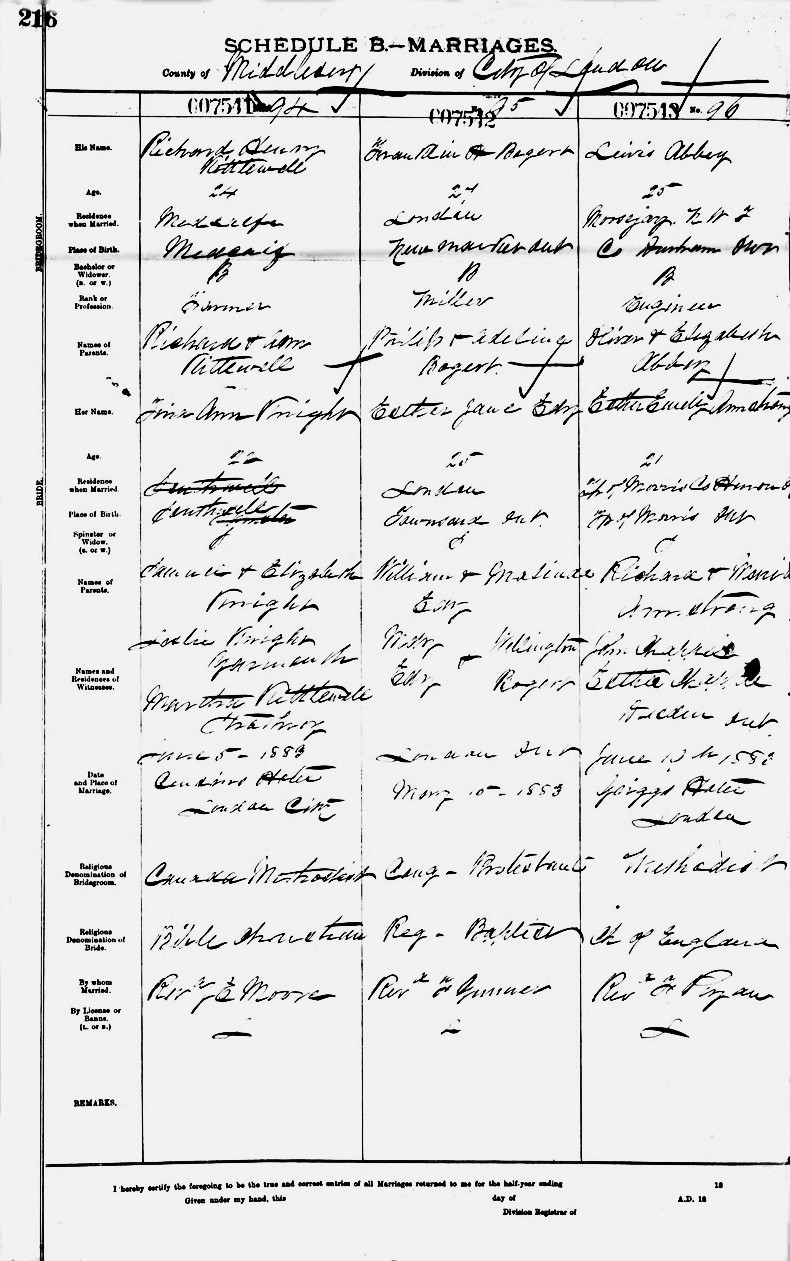 216
SCHEDULE B.—MARRIAGES.
County of Middlesex Division of City of London
007541 94
007542 95
007543 No. 96
BRIDEGROOM.
His Name.
Richard Henry
Kittewell
Franklin Bogert
Lewis Abbey
Age.
24
27
25
Residence
when Married.
Metcalfe
London
Moosejaw N W T
Place of Birth.
New market Ont
Co Durham Ont
Bachelor or
Widower.
(B. or W.)
B
B
B
Rank or
Profession.
Farmer
Miller
Engineer
Names of
Parents.
Richard & Ann
Kittewell
Philip & Adeline
Bogert
Oliver & Elizabeth
Abbey
BRIDE.
Her Name.
Ann Knight
Esther Jane Edy
Esther Emily Armstrong
Age.
22
25
21
Residence
when Married.
London
Tp of Morris Co Huron
Place of Birth.
Townsend Ont.
Tp of Morris Ont
Spinster or
Widow.
(S. or W.)
Names of
Parents.
& Elizabeth
Knight
William & Malinda
Edy
Richard & Maria
Armstrong
Names and
Residences of
Witnesses.
Leslie Knight
Yarmouth
Martha Kittewell
Strathroy
Edy & Willington
Bogert
John Chappel
Esther
Ont
Date
and Place of
Marriage.
June 5 - 1883
Hotel
London City
London Ont
May 10 - 1883
June 1883
Griggs Hotel
London
Religious
Denomination of
Bridegroom.
Canada Methodist
Cong - Protestant
Methodist
Religious
Denomination of
Bride.
Bible Christian
Reg - Baptist
Ch of England
By whom
Married.
Rev E Moore
Rev
Rev
By License or
Banns.
(L. or B.)
L
L
L
REMARKS.
I hereby certify the foregoing to be the true and correct entries of all Marriages returned to me for the half-year ending 18
Given under my hand, this day of A.D. 18
Division Registrar of